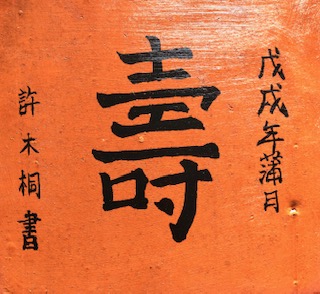 戊戌年蒲月
壽
許木桐書